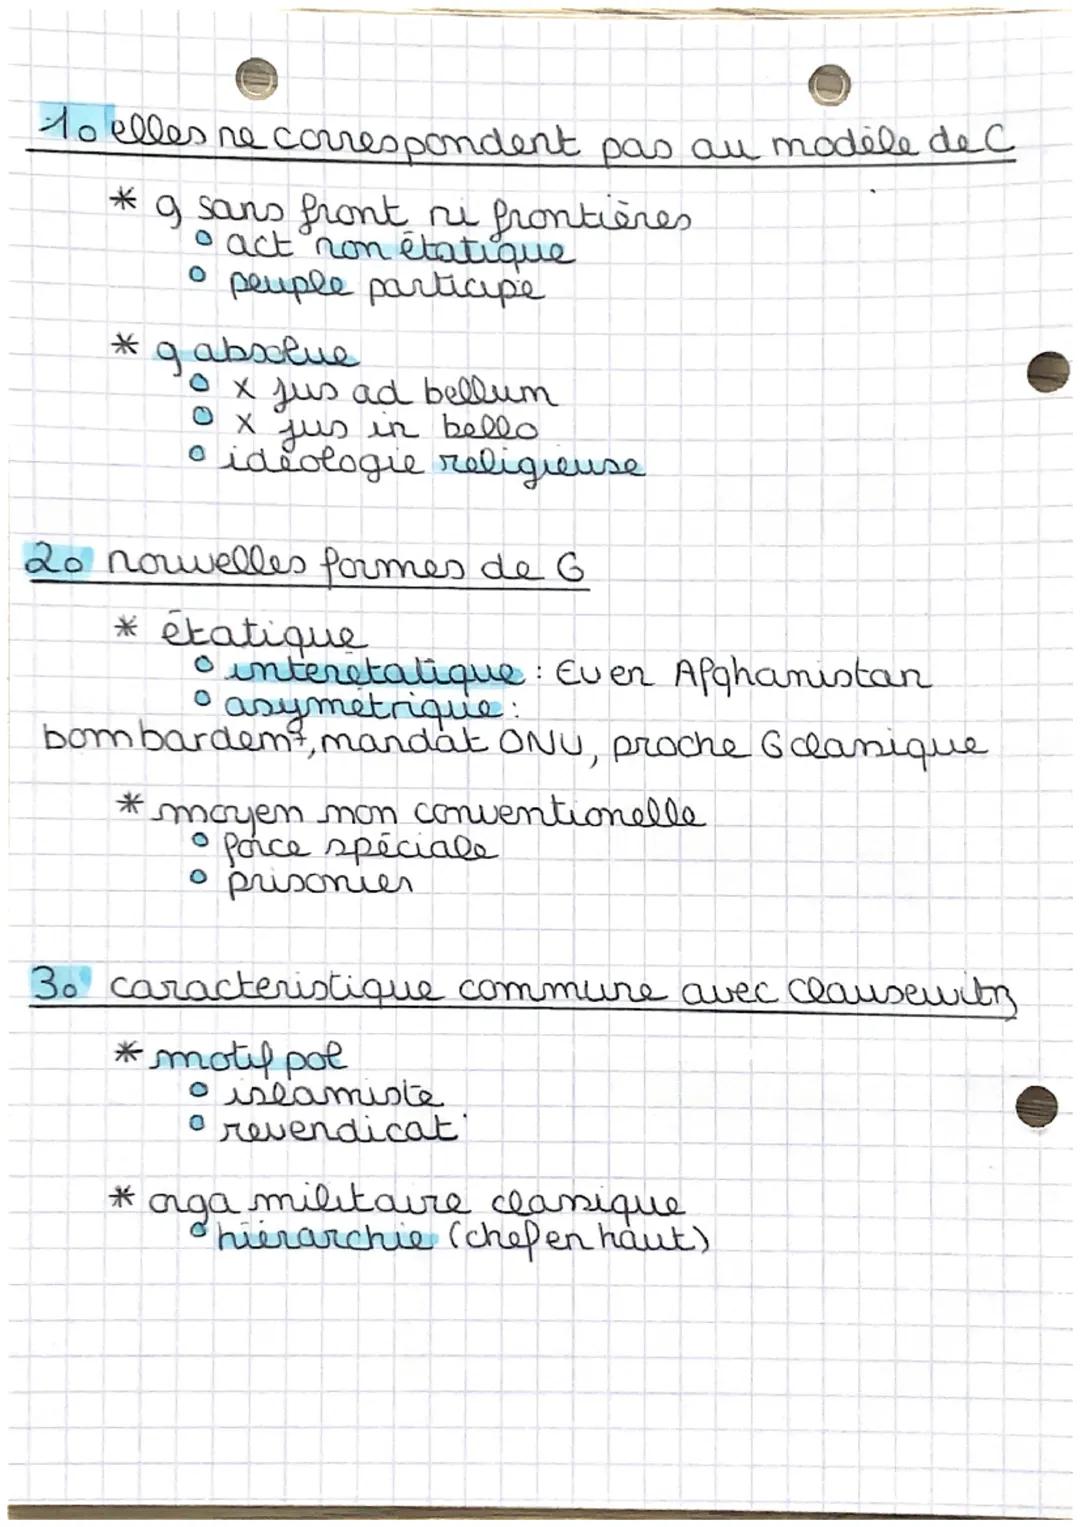 1o elles ne correspondent pas au modèle de C
* g sans front ni frontières
o act° non étatique
o peuple participe
* g absolue
o x jus ad bellum
o x jus in bello
o idéologie religieuse
2o nouvelles formes de G
* étatique
o interétatique : EU en Afghanistan
o asymétrique :
bombardemt, mandat ONU, proche G classique
* moyen non conventionelle
o force spéciale
o prisonier
3o caracteristique commune avec Clausewitz
* motif pol
o islamiste
o revendicat°
* orga militaire classique
o hiérarchie (chef en haut)